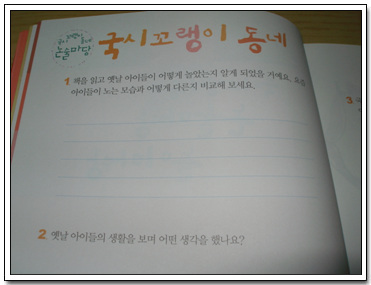 논술마당 국시꼬랭이 동네
1 책을 읽고 옛날 아이들이 어떻게 놀았는지 알게 되었을 거예요. 요즘
아이들이 노는 모습과 어떻게 다른지 비교해 보세요.
2 옛날 아이들의 생활을 보며 어떤 생각을 했나요?
3